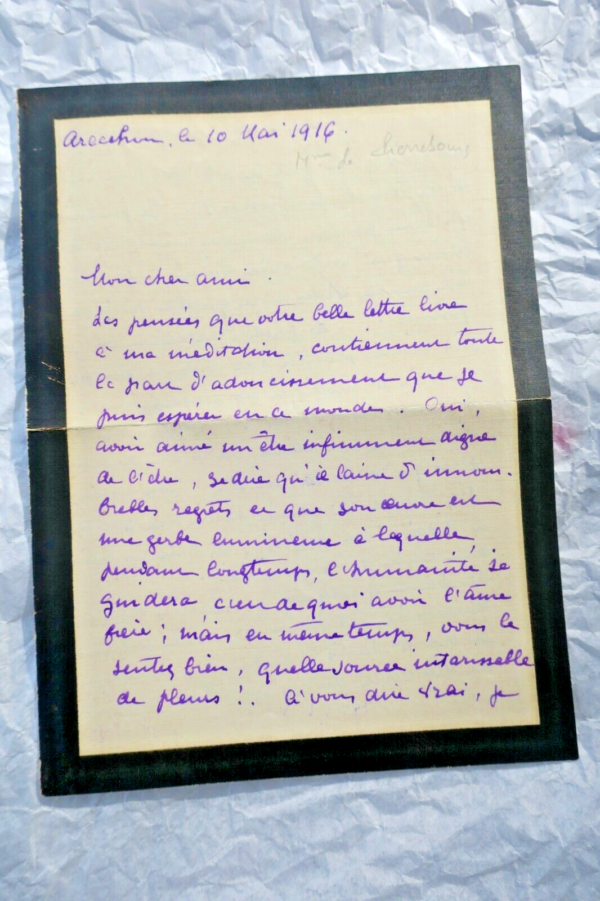 Arcachon, le 10 Mai 1916.
Mme
Mon cher ami.
Les pensées que votre belle lettre livre
à ma méditation, contiennent toute
la part d'adoucissement que je
puis espérer en ce monde. Oui,
avoir aimé un être infiniment digne
de l'être, se dire qu'il laisse d'innom-
brables regrets et que son œuvre est
une gerbe lumineuse à laquelle,
pendant longtemps, l'humanité se
guidera, c'en de quoi avoir l'âme
fière ; mais en même temps, vous le
sentez bien, quelle source intarissable
de pleurs !. À vous dire vrai, je